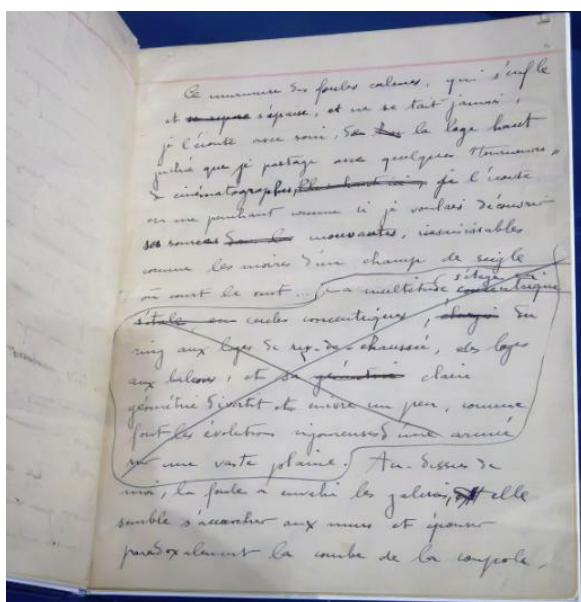 Ce murmure des foules calmes, qui s'enfle
et se repose s'épaise, et ne se tait jamais,
je l'écoute avec soin, de la loge haut
juchée que je partage avec quelques "tourneurs"
de cinématographes, je l'écoute
en me penchant comme si je voulais découvrir
ses sources mouvantes, insaisissables
comme les moires d'un champ de seigle
où court le vent... La multitude s'étage en
concentrique
s'étale, en cercles concentriques, élargis du
ring aux loges de rez-de-chaussée, des loges
aux balcons, et sa géométrie claire
géométrie divertit et enivre un peu, comme
font les évolutions rigoureuses d'une armée
sur une vaste plaine. Au-dessus de
moi, la foule a envahi les galeries, elle
semble s'accrocher aux murs et épouser
paradoxalement la courbe de la coupole.